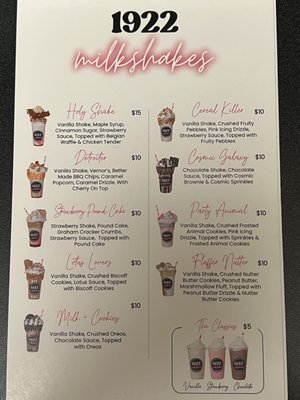 1922
milkshakes
Holy Shake $15
Vanilla Shake, Maple Syrup,
Cinnamon Sugar, Strawberry
Sauce, Topped with Belgian
Waffle & Chicken Tender
Detroiter $10
Vanilla Shake, Vernor's, Better
Made BBQ Chips, Caramel
Popcorn, Caramel Drizzle, With
Cherry On Top
Strawberry Pound Cake $10
Strawberry Shake, Pound Cake,
Graham Cracker Crumbs,
Strawberry Sauce, Topped with
Pound Cake
Lotus Lovers $10
Vanilla Shake, Crushed Biscoff
Cookies, Lotus Sauce, Topped
with Biscoff Cookies
Milk + Cookies $10
Vanilla Shake, Crushed Oreos,
Chocolate Sauce, Topped
with Oreos
Cereal Killer $10
Vanilla Shake, Crushed Fruity
Pebbles, Pink Icing Drizzle,
Strawberry Sauce, Topped with
Fruity Pebbles
Cosmic Galaxy $10
Chocolate Shake, Chocolate
Sauce, Topped with Cosmic
Brownie & Cosmic Sprinkles
Party Animal $10
Vanilla Shake, Crushed Frosted
Animal Cookies, Pink Icing
Drizzle, Topped with Sprinkles &
Frosted Animal Cookies
Fluffer Nutter $10
Vanilla Shake, Crushed Nutter
Butter Cookies, Peanut Butter,
Marshmallow Fluff, Topped with
Peanut Butter Drizzle & Nutter
Butter Cookies
The Classics $5
Vanilla Strawberry Chocolate